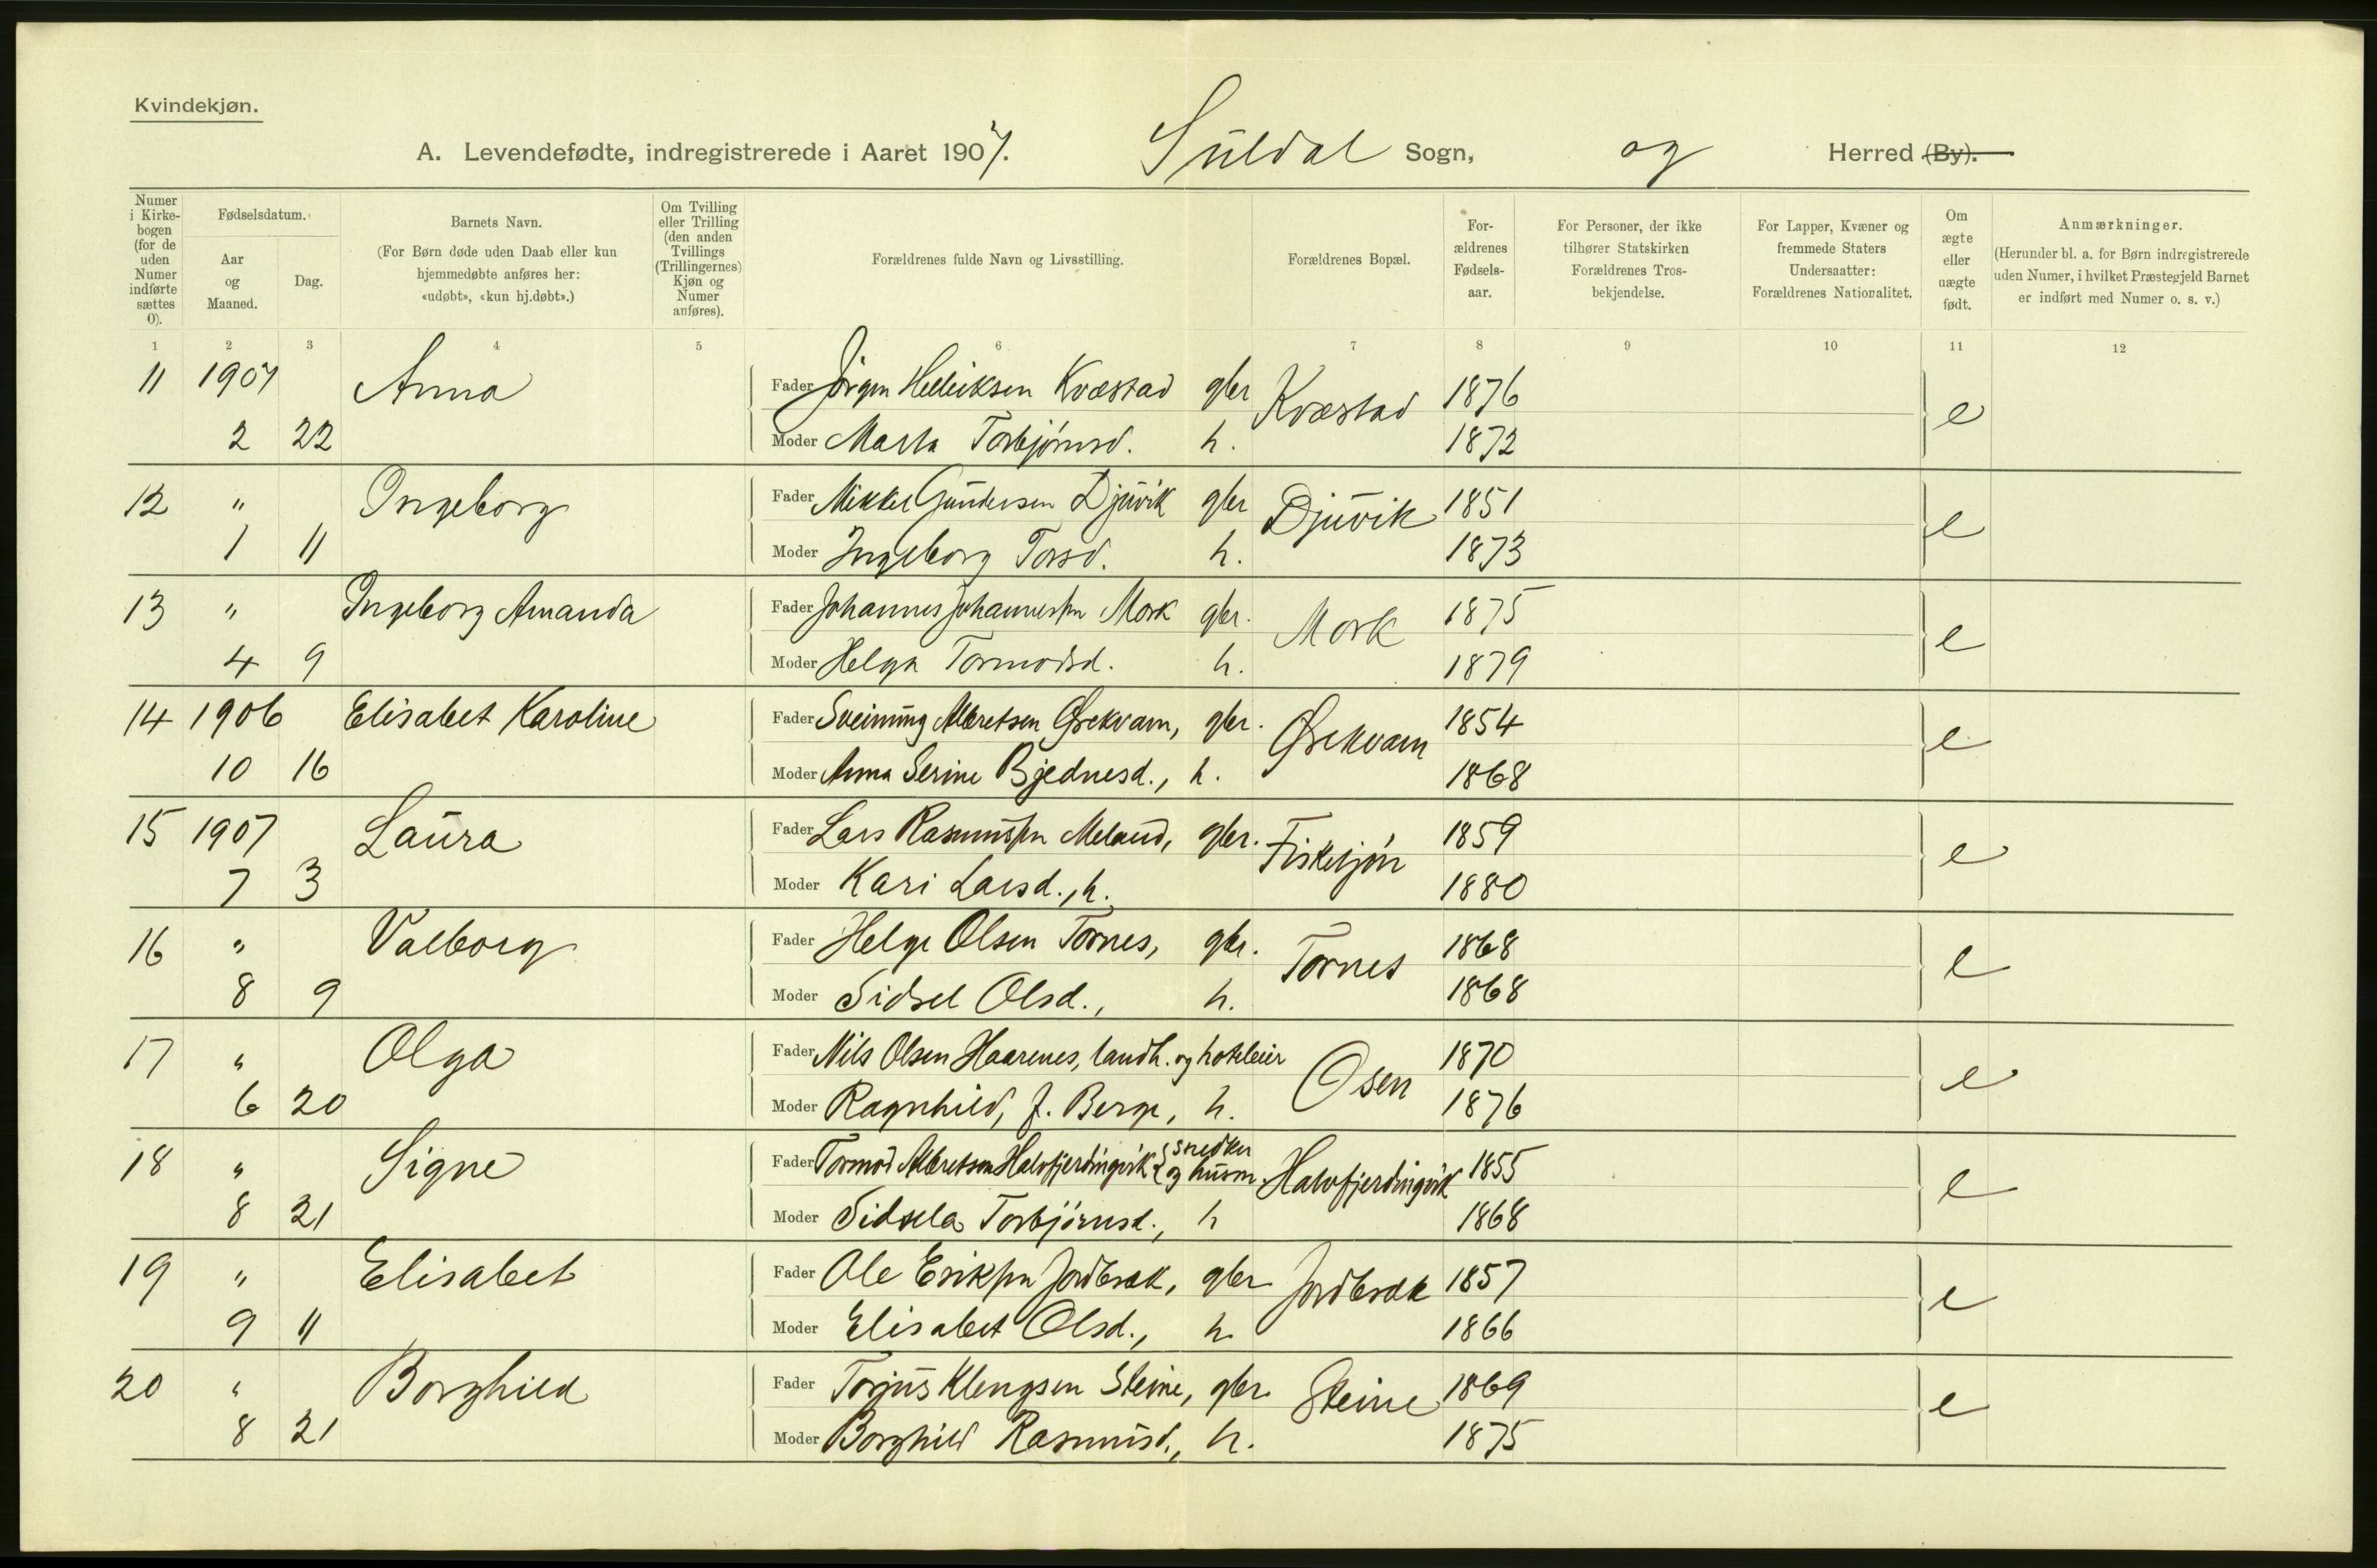 Kvindekjøn.
A. Levendefødte, indregistrerede i Aaret 1907. Suldal Sogn, og Herred (By).
Numer i Kirkebogen (for de uden Numer indførte sættes 0).
Fødselsdatum.
Aar og Maaned.
Dag.
Barnets Navn.
(For Børn døde uden Daab eller kun hjemmedøbte anføres her: «udøbt», «kun hj.døbt».)
Om Tvilling eller Trilling (den anden Tvillings (Trillingernes) Kjøn og Numer anføres).
Forældrenes fulde Navn og Livsstilling.
Forældrenes Bopæl.
Forældrenes Fødselsaar.
For Personer, der ikke tilhører Statskirken Forældrenes Trosbekjendelse.
For Lapper, Kvæner og fremmede Staters Undersaatter: Forældrenes Nationalitet.
Om ægte eller uægte født.
Anmærkninger.
(Herunder bl. a. for Børn indregistrerede uden Numer, i hvilket Præstegjeld Barnet er indført med Numer o. s. v.)
1 2 3 4 5 6 7 8 9 10 11 12
11 1907 Anna Fader Jörgen Kvæstad gbr Kvæstad 1876 e
2 22 Moder Marta Torbjörnsd. h. 1872
12 " Ingeborg Fader Mikkel Gundersen Djuvik gbr Djuvik 1851 e
1 11 Moder Ingeborg Torsd. h. 1873
13 " Ingeborg Amanda Fader Johannes Johannessen Mork gbr. Mork 1875 e
4 9 Moder Helga Tormodsd. h. 1879
14 1906 Elisabet Karoline Fader Sveinung Albretsen Ørekvam, gbr. Ørekvam 1854 e
10 16 Moder Anna Serine Bjednesd., h. 1868
15 1907 Laura Fader Lars Rasmussen Meland, gbr. 1859 e
7 3 Moder Kari Larsd., h. 1880
16 " Valborg Fader Helge Olsen Tornes, gbr. Tornes 1868 e
8 9 Moder Sidsel Olsd., h. 1868
17 " Olga Fader Nils Olsen Haarenes, landh. og hoteleier Osen 1870 e
6 20 Moder Ragnhild, f. Berge, h. 1876
18 " Signe Fader Tormod Albretsen Halvfjerdingvik { snedker og husm. Halvfjerdingvik 1855 e
8 21 Moder Sidsela Torbjörnsd., h 1868
19 " Elisabet Fader Ole Eriksen Jordbræk, gbr Jordbræk 1857 e
9 11 Moder Elisabet Olsd., h. 1866
20 " Borghild Fader Torjus Klengsen Steine, gbr. Steine 1869 e
8 21 Moder Borghild Rasmusd., h. 1875